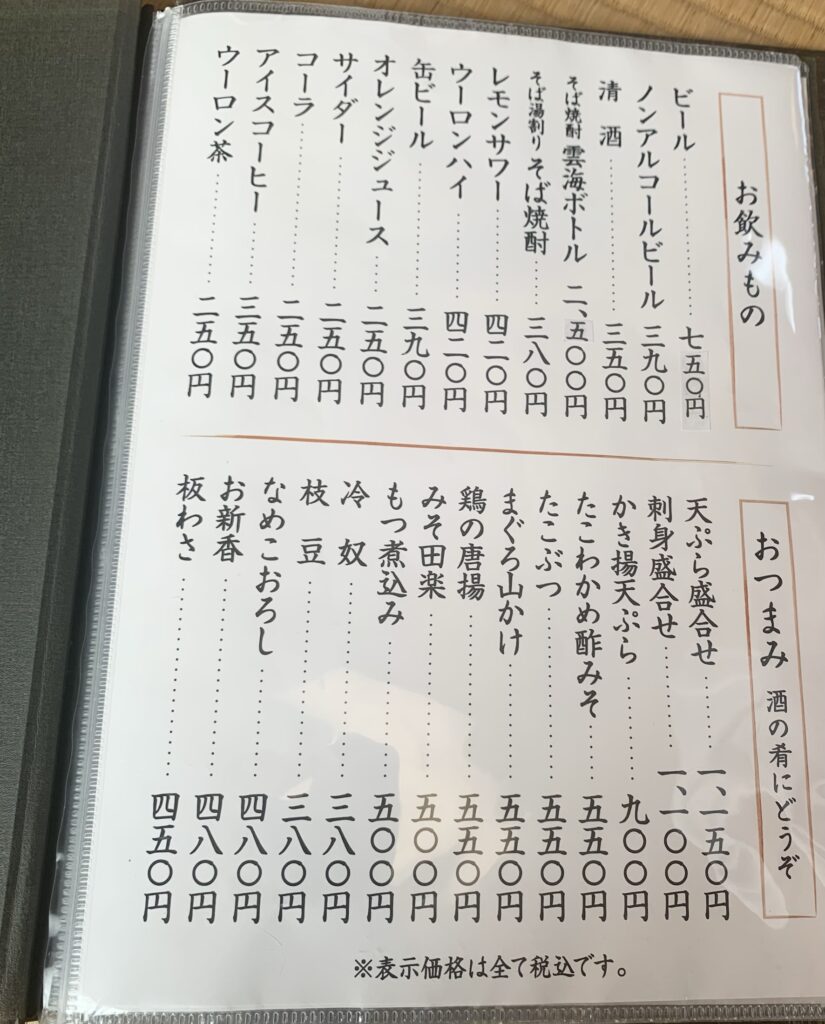 お飲みもの
ビール 七五〇円
ノンアルコールビール 三九〇円
清酒 三五〇円
そば焼酎 雲海ボトル 二、五〇〇円
そば湯割り そば焼酎 三八〇円
レモンサワー 四二〇円
ウーロンハイ 四二〇円
缶ビール 三九〇円
オレンジジュース 二五〇円
サイダー 二五〇円
コーラ 二五〇円
アイスコーヒー 三五〇円
ウーロン茶 二五〇円
おつまみ 酒の肴にどうぞ
天ぷら盛合せ 一、一五〇円
刺身盛合せ 一、一〇〇円
かき揚天ぷら 九〇〇円
たこわかめ酢みそ 五五〇円
たこぶつ 五五〇円
まぐろ山かけ 五五〇円
鶏の唐揚 五五〇円
みそ田楽 五〇〇円
もつ煮込み 五〇〇円
冷奴 三八〇円
枝豆 三八〇円
なめこおろし 四八〇円
お新香 四八〇円
板わさ 四五〇円
※表示価格は全て税込です。